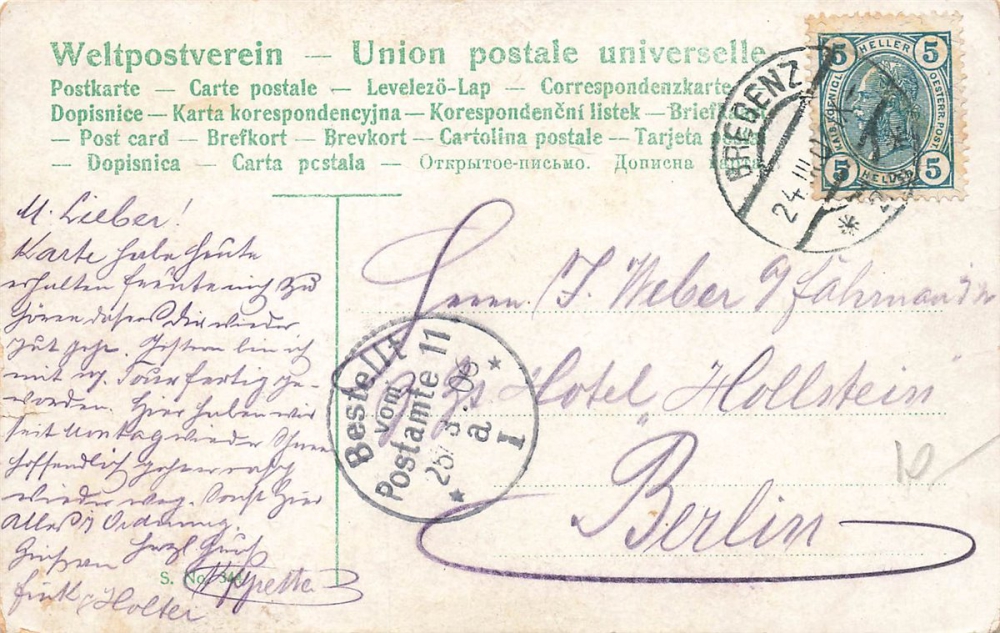 Weltpostverein — Union postale universelle
Postkarte — Carte postale — Levelező-Lap — Correspondenzkarte
Dopisnice — Karta korespondencyjna — Korespondenční listek — Brief
— Post card — Brefkort — Brevkort — Cartolina postale — Tarjeta
— Dopisnica — Carta postala — Открытое-письмо. Дописна
5 HELLER 5
KAIS. KOENIGL. OESTERR. POST
5 HELLER 5
BREGENZ
24 III
M. Lieber!
Karte habe heute
erhalten freute mich zu
hören dass es Dir wieder
gut geht. Gestern bin ich
mit m. Tour fertig ge-
worden. Hier haben wir
seit Montag wieder
hoffentlich geht er rasch
wieder weg. Sonst hier
Alles i. Ordnung.
Herzl.
S. No.
Fink Holter
Herrn J. Weber
Hotel Hollstein
Berlin
Bestellt
vom
Postamte 11
25/3.09
a
I